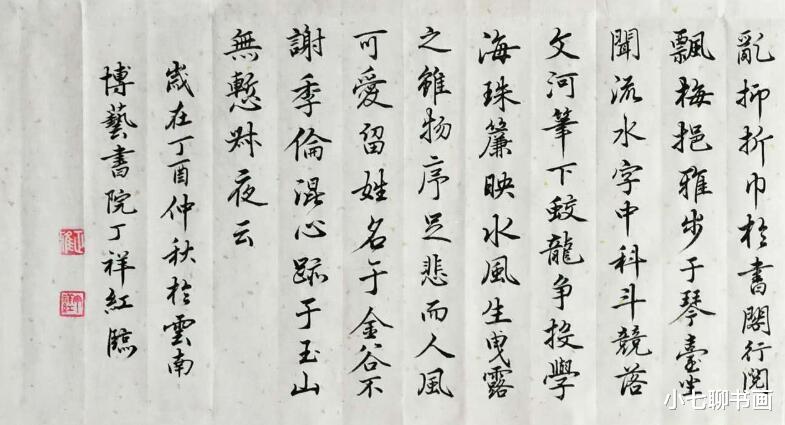 亂抑折巾於書閣行閱
飄梅挹雅步于琴臺坐
聞流水字中科斗競落
文河筆下蛟龍爭投學
海珠簾映水風生曳露
之雖物序足悲而人風
可愛留姓名于金谷不
謝季倫混心跡于玉山
無慙叔夜云
歲在丁酉仲秋於雲南
博藝書院丁祥紅臨
小七聊书画